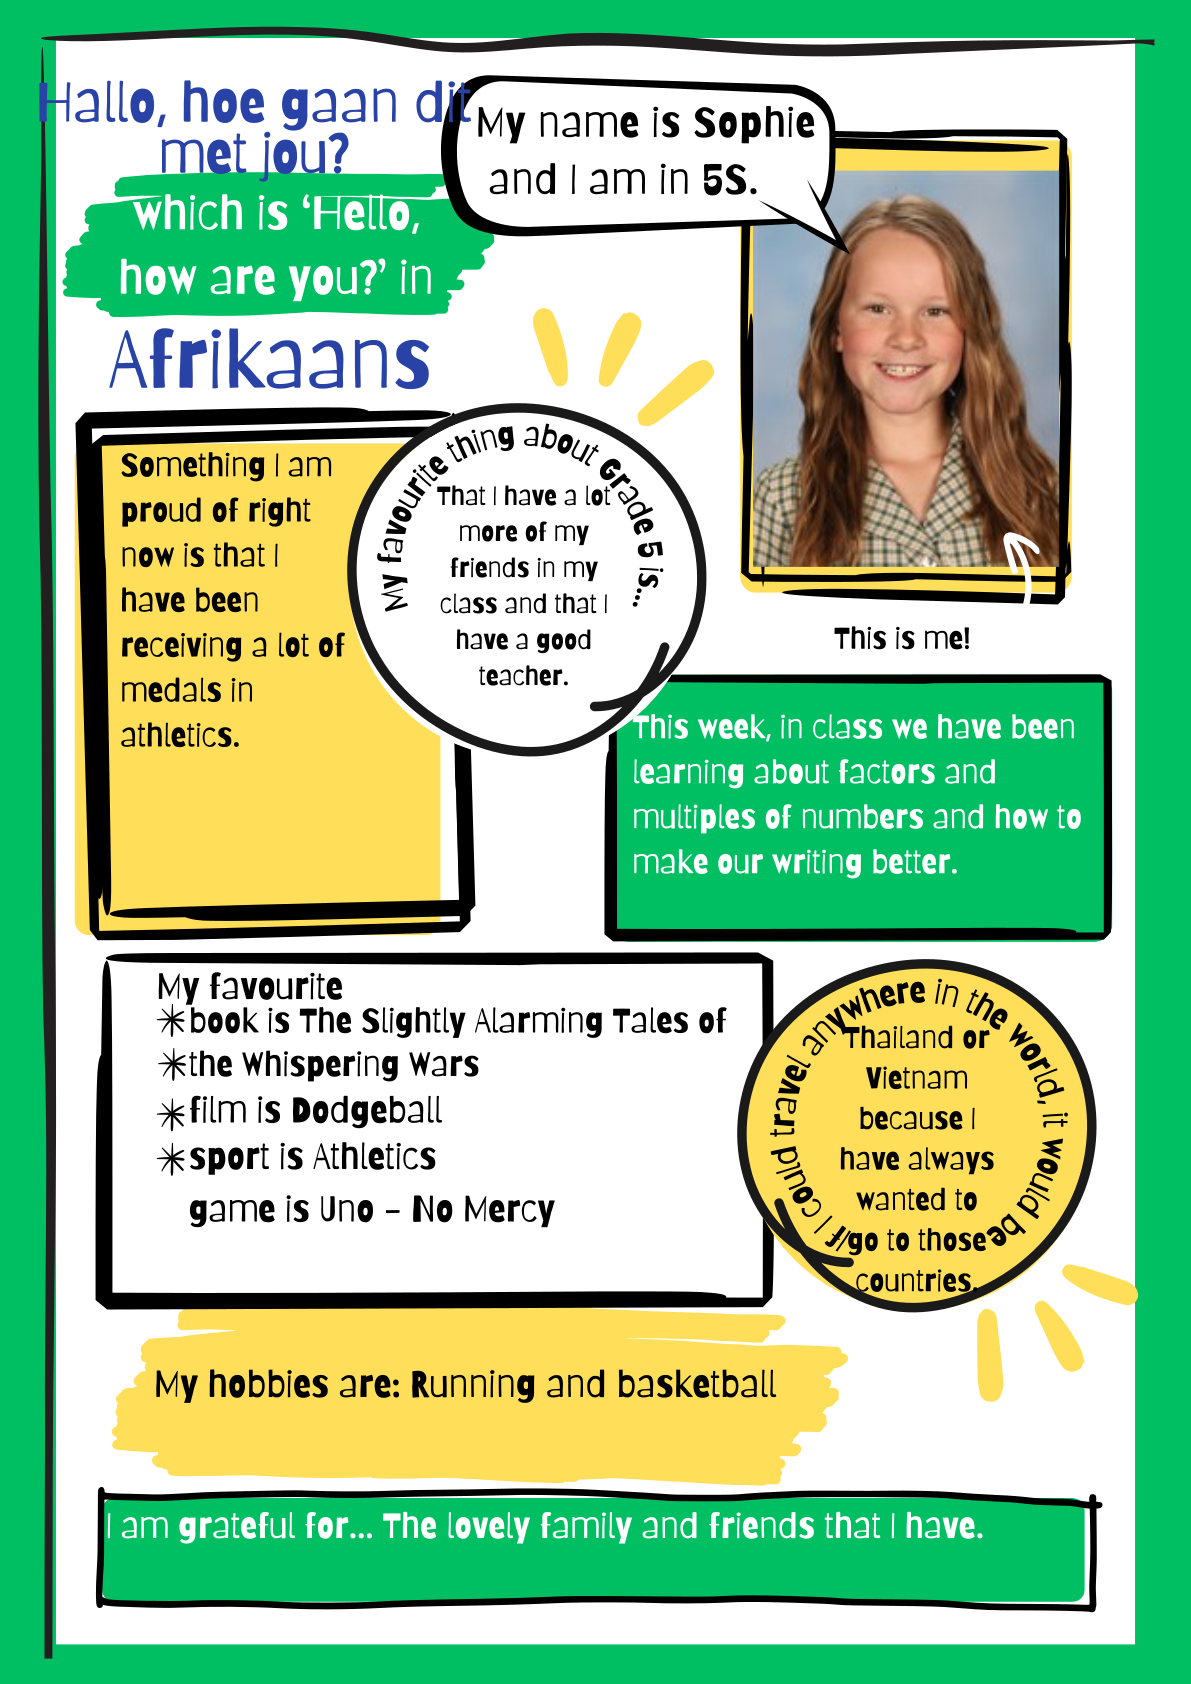 Hallo, hoe gaan dit
met jou?
which is ‘Hello,
how are you?’ in
Afrikaans
My name is Sophie
and I am in 5S.
This is me!
Something I am
proud of right
now is that I
have been
receiving a lot of
medals in
athletics.
My favourite thing about Grade 5 is...
That I have a lot
more of my
friends in my
class and that I
have a good
teacher.
This week, in class we have been
learning about factors and
multiples of numbers and how to
make our writing better.
My favourite
book is The Slightly Alarming Tales of
the Whispering Wars
film is Dodgeball
sport is Athletics
game is Uno – No Mercy
If I could travel anywhere in the world, it would be
Thailand or
Vietnam
because I
have always
wanted to
go to those
countries.
My hobbies are: Running and basketball
I am grateful for... The lovely family and friends that I have.